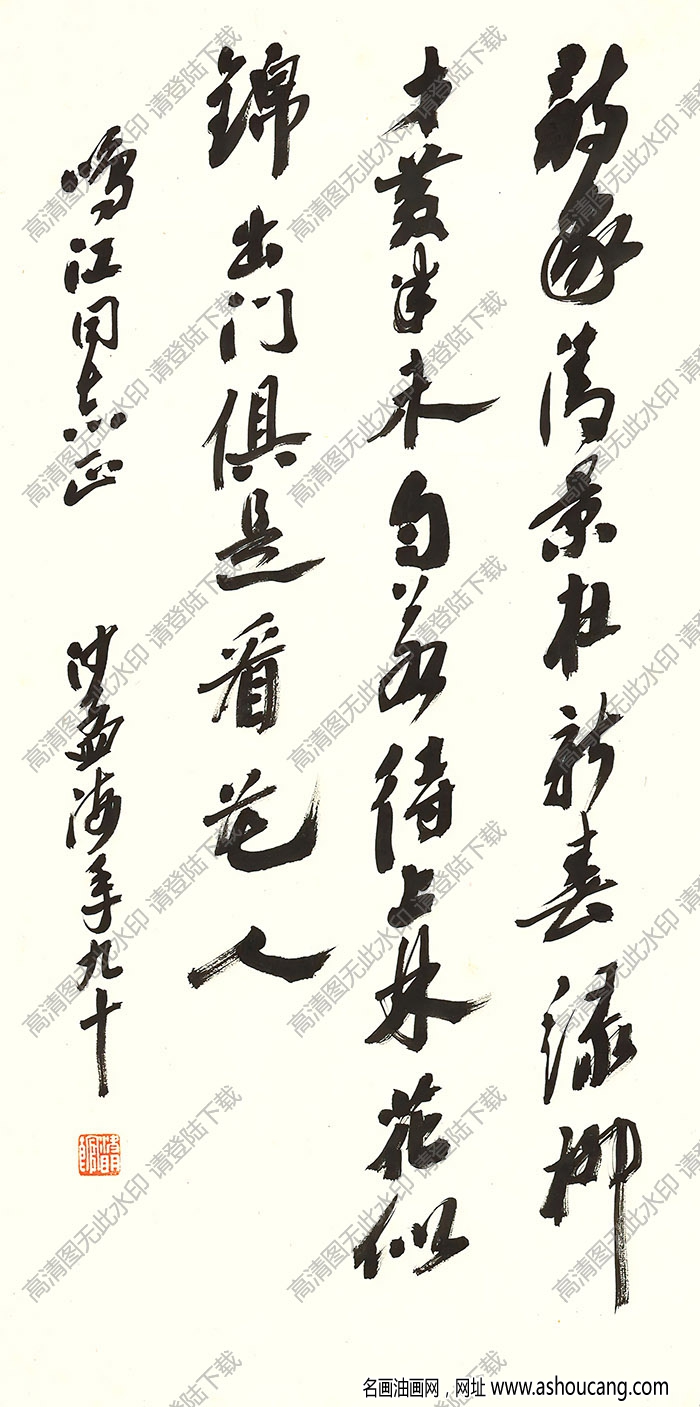 詩家清景在新春綠柳
才黄半未匀若待上林花似
錦出门俱是看花人
鸣江同志正
沙孟海年九十
高清图无此水印 请登陆下载
名画油画网，网址 www.ashoucang.com